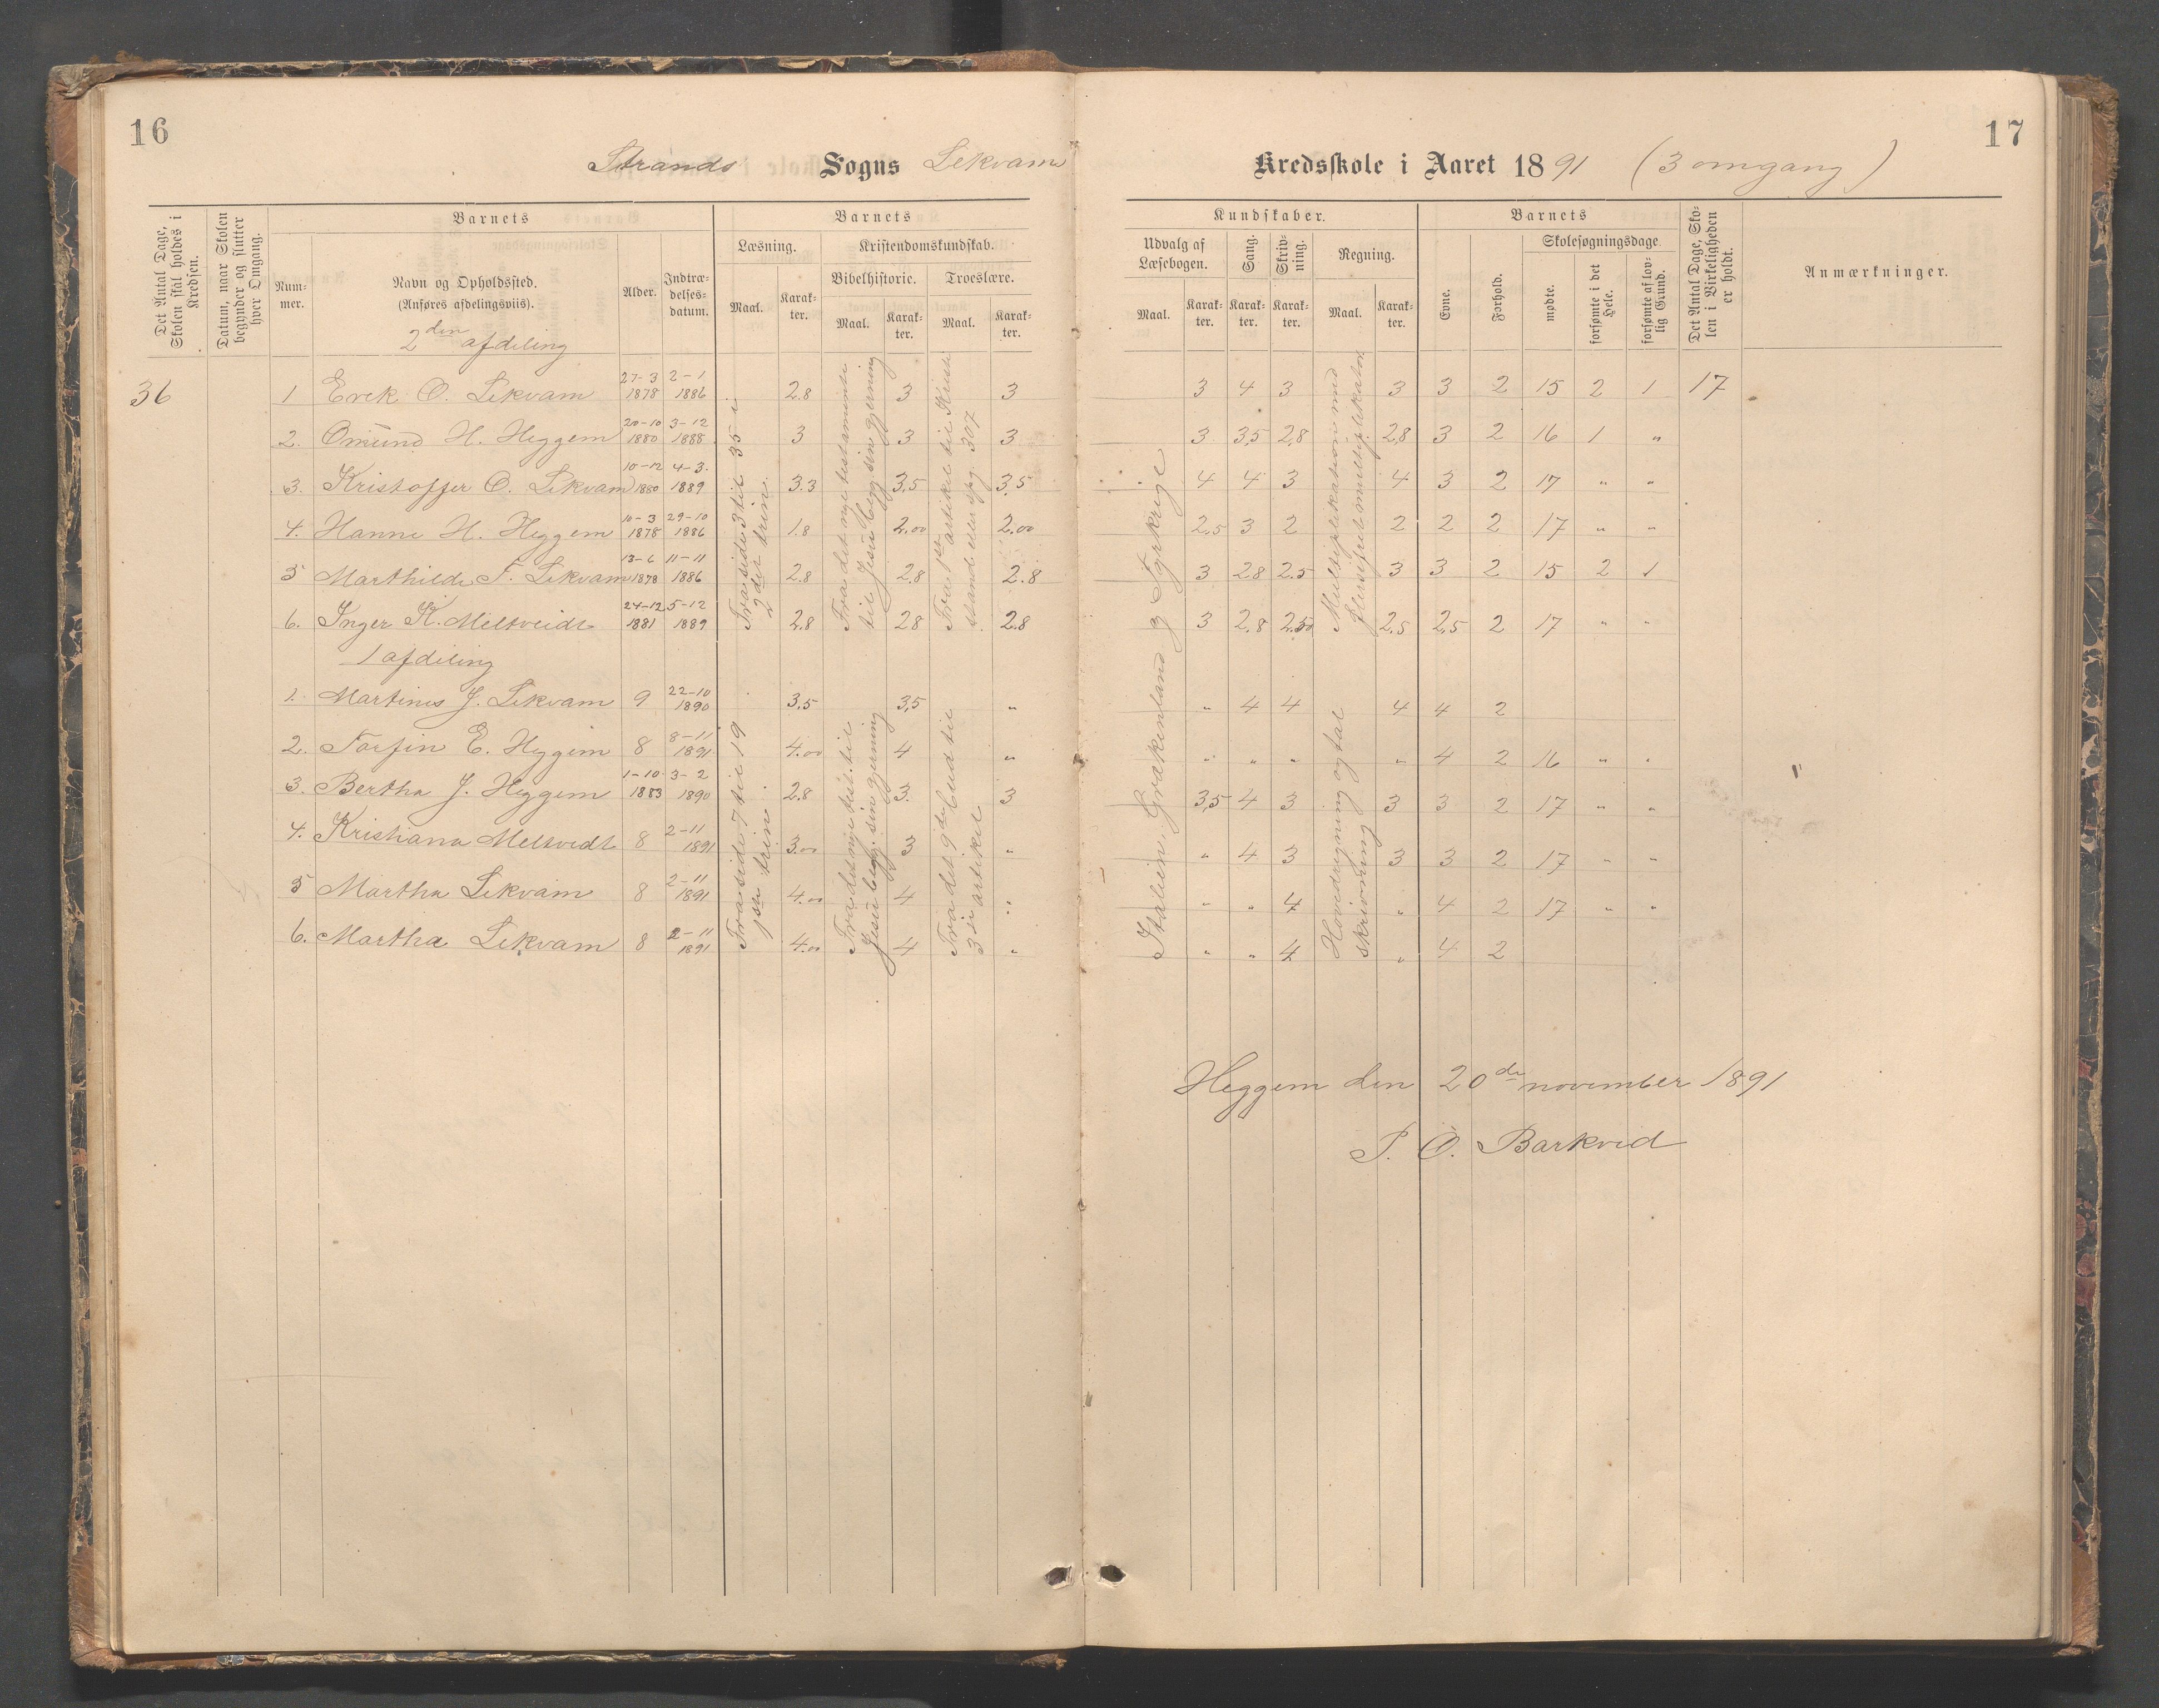 16
17
Strands Sogns Lekvam Kredsskole i Aaret 1891 (3 omgang)
Det Antal Dage, Skolen skal holdes i Kredsen.
Datum, naar Skolen begynder og slutter hver Omgang.
Barnets
Nummer.
Navn og Opholdssted. (Anføres afdelingsviis).
Alder.
Indtrædelsesdatum.
Barnets
Læsning.
Maal.
Karakter.
Kristendomskundskab.
Bibelhistorie.
Maal.
Karakter.
Troeslære.
Maal.
Karakter.
Kundskaber.
Udvalg af Læsebogen.
Maal.
Karakter.
Sang.
Karakter.
Skrivning.
Karakter.
Regning.
Maal.
Karakter.
Barnets
Evne.
Forhold.
Skolesøgningsdage.
mødte.
forsømte i det Hele.
forsømte af lovlig Grund.
Det Antal Dage, Skolen i Virkeligheden er holdt.
Anmærkninger.
2den afdeling
36 1 Erek O. Lekvam 27-3 1878 2-1 1886 2.8 3 3 3 4 3 3 3 2 15 2 1 17
2. Omund H. Heggem 20-10 1880 3-12 1888 3 3 3 3 3,5 2,8 2,8 3 2 16 1 "
3. Kristoffer O. Lekvam 10-12 1880 4-3 1889 3.3 3,5 3,5 4 4 3 4 3 2 17 " "
4. Hanne H. Heggem 10-3 1878 29-10 1886 1.8 2,00 2,00 2,5 3 2 2 2 2 17 " "
5 Marthilde T. Lekvam 13-6 1878 11-11 1886 2.8 2.8 2.8 3 2 8 2.5 3 3 2 15 2 1
6. Inger K. Meltveidt 24-12 1881 5-12 1889 2.8 2 8 2.8 3 2.8 2.50 2.5 2,5 2 17 " "
Fra side 3 til 35 i 2det trin.
Fra det nye testamente til Jesu begg sin gjerning
Fra 1ste artikel til Kristi stand uen spg. 307
Multiplikation med flersifret multiplikator
Italien, Grækenland og Tyrkrige
1 afdeling
1. Martines J. Lekvam 9 22-10 1890 3.5 3,5 " " 4 4 4 4 2
2. Torfin E. Heggem 8 8-11 1891 4.00 4 " " " " " 4 2 16 " "
3. Bertha J. Heggem 1-10 1883 3-2 1890 2.8 3. 3 3,5 4 3 3 3 2 17 " "
4. Kristiana Meltvedt 8 2-11 1891 3.00 3 " " 4 3 3 3 2 17 " "
5 Martha Lekvam 8 2-11 1891 4.00 4 " " " 4 " 4 2 17 " "
6. Martha Lekvam 8 2-11 1891 4.00 4 " " " 4 " 4 2
Fra side 7 til 19 1ste trin.
Fra det nye test. til Jesu begg. sin gjerning
Fra det 9de bud til 3die artikel
Hovedregning og tal skrivning
Heggem den 20de november 1891
P. O. Barkved